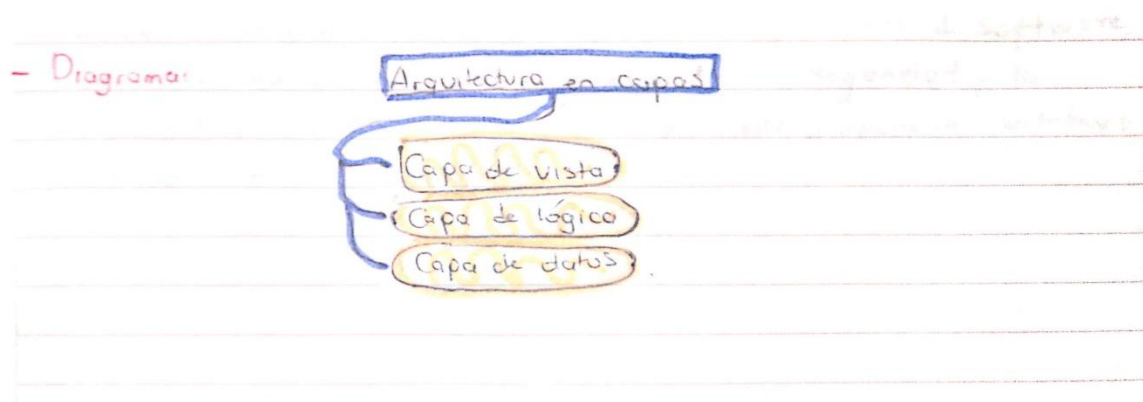 - Diagrama:
Arquitectura en capas
Capa de vista
Capa de lógica
Capa de datos